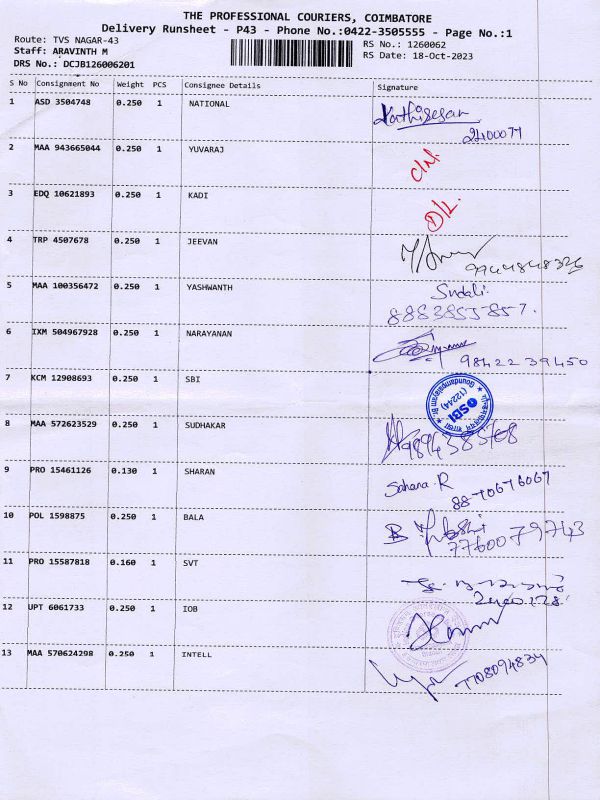 THE PROFESSIONAL COURIERS, COIMBATORE
Delivery Runsheet - P43 - Phone No.:0422-3505555 - Page No.:1
Route: TVS NAGAR-43
RS No.: 1260062
Staff: ARAVINTH M
RS Date: 18-Oct-2023
DRS No.: DCJB126006201
S No Consignment No Weight PCS Consignee Details Signature
1 ASD 3504748 0.250 1 NATIONAL
2 MAA 943665044 0.250 1 YUVARAJ
3 EDQ 10621893 0.250 1 KADI D/L.
4 TRP 4507678 0.250 1 JEEVAN
9944848326
5 MAA 100356472 0.250 1 YASHWANTH
8883855857.
6 IXM 504967928 0.250 1 NARAYANAN
98422 39450
7 KCM 12908693 0.250 1 SBI
SBI
(12244)
Goundampalayam Br.
8 MAA 572623529 0.250 1 SUDHAKAR
9 PRO 15461126 0.130 1 SHARAN Sahana.R
88-70676067
10 POL 1598875 0.250 1 BALA
7760079743
11 PRO 15587818 0.160 1 SVT
12 UPT 6061733 0.250 1 IOB
13 MAA 570624298 0.250 1 INTELL
7708094834